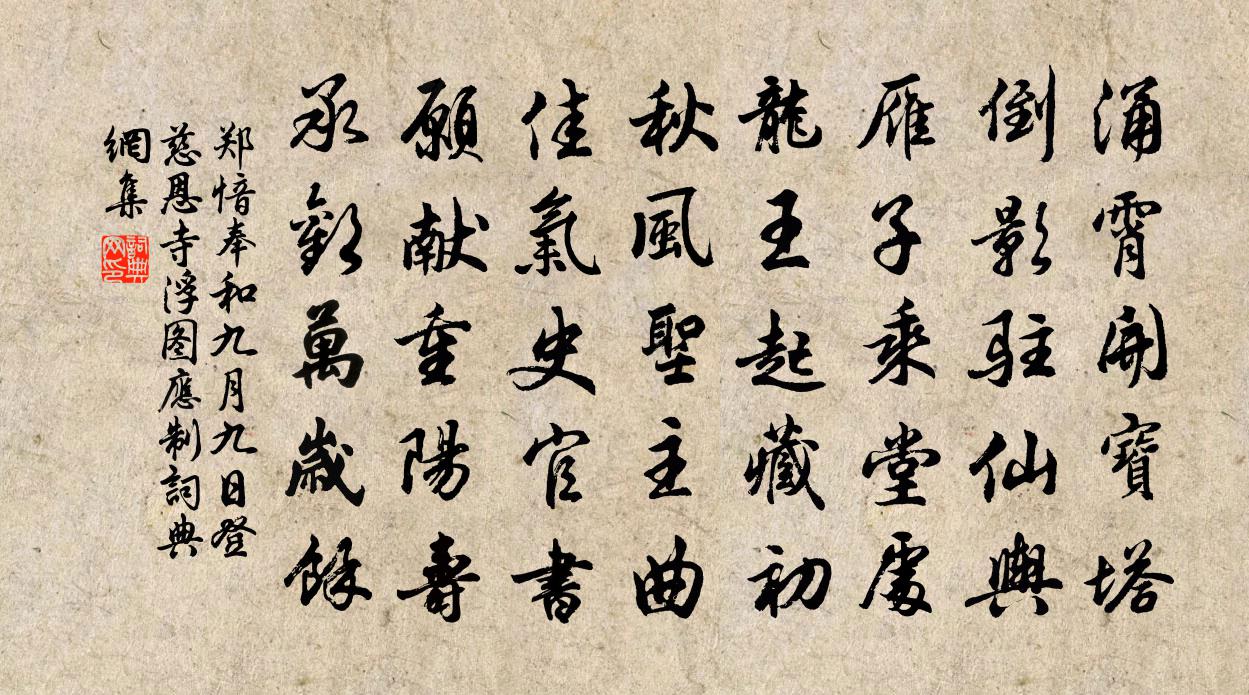 涌霄開寶塔
倒影駐仙輿
雁子乘堂處
龍王起藏初
秋風聖主曲
佳氣史官書
願献重陽壽
承歡萬歲餘
郑愔奉和九月九日登
慈恩寺浮图應制詞典
網集
詞典网印